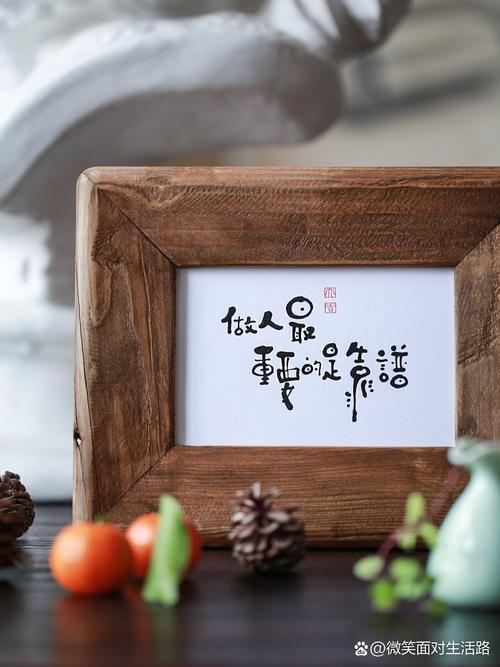 做人最
重要的是靠譜
@微笑面对生活路